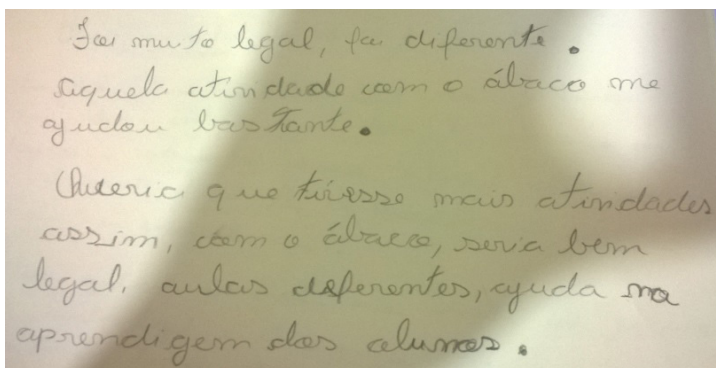 Foi muito legal, foi diferente.
aquela atividade com o ábaco me
ajudou bastante.
Queria que tivesse mais atividades
assim, com o ábaco, seria bem
legal. aulas deferentes, ajuda na
aprendigem dos alunos.